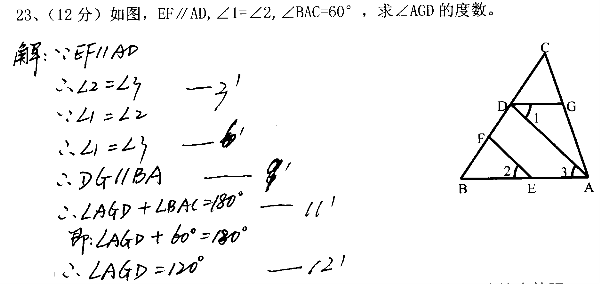 23、(12分) 如图，EF∥AD,∠1=∠2,∠BAC=60°，求∠AGD的度数。
解:∵EF∥AD
∴∠2=∠3 —3'
∵∠1=∠2
∴∠1=∠3 —6'
∴DG∥BA —9'
∴∠AGD+∠BAC=180° —11'
即:∠AGD+60°=180°
∴∠AGD=120° —12'
C
D G
1
F
2 3
B E A